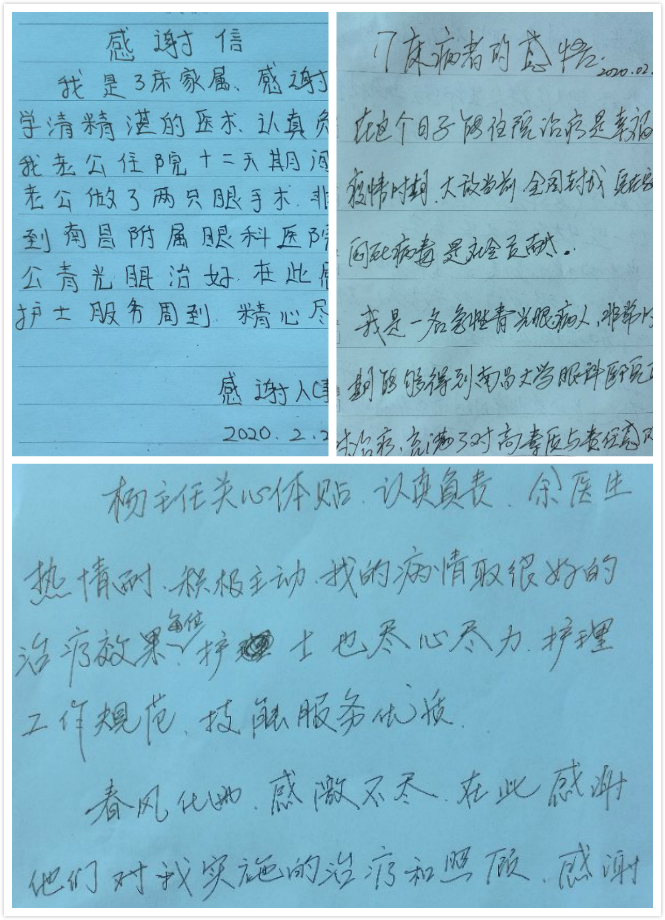 感谢信
我是3床家属、感谢
学清精湛的医术.认真负
我老公住院十二天期间
老公做了两只眼手术.非
到南昌附属眼科医院
公青光眼治好.在此感
护士服务周到.精心尽
感谢人
2020.2.2
17床病者的感悟.
2020.02.
在这个日子能住院治疗是幸福
疫情时期.大敌当前 全国封城
病毒 是
我是一名急性青光眼病人,非常时
期能够得到南昌大学眼科医院
治疗.充满了对高素质与责任高
杨主任关心体贴.认真负责.余医生
热情耐.积极主动.我的病情取很好的
治疗效果.每位护士也尽心尽力.护理
工作规范.技能服务优质.
春风化雨.感激不尽.在此感谢
他们对我实施的治疗和照顾.感谢